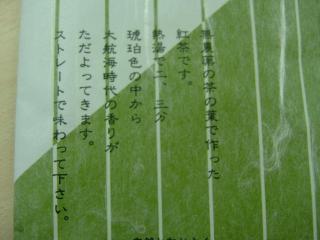 無農薬の茶の葉で作った
紅茶です。
熱湯で二、三分
琥珀色の中から
大航海時代の香りが
ただよってきます。
ストレートで味わって下さい。